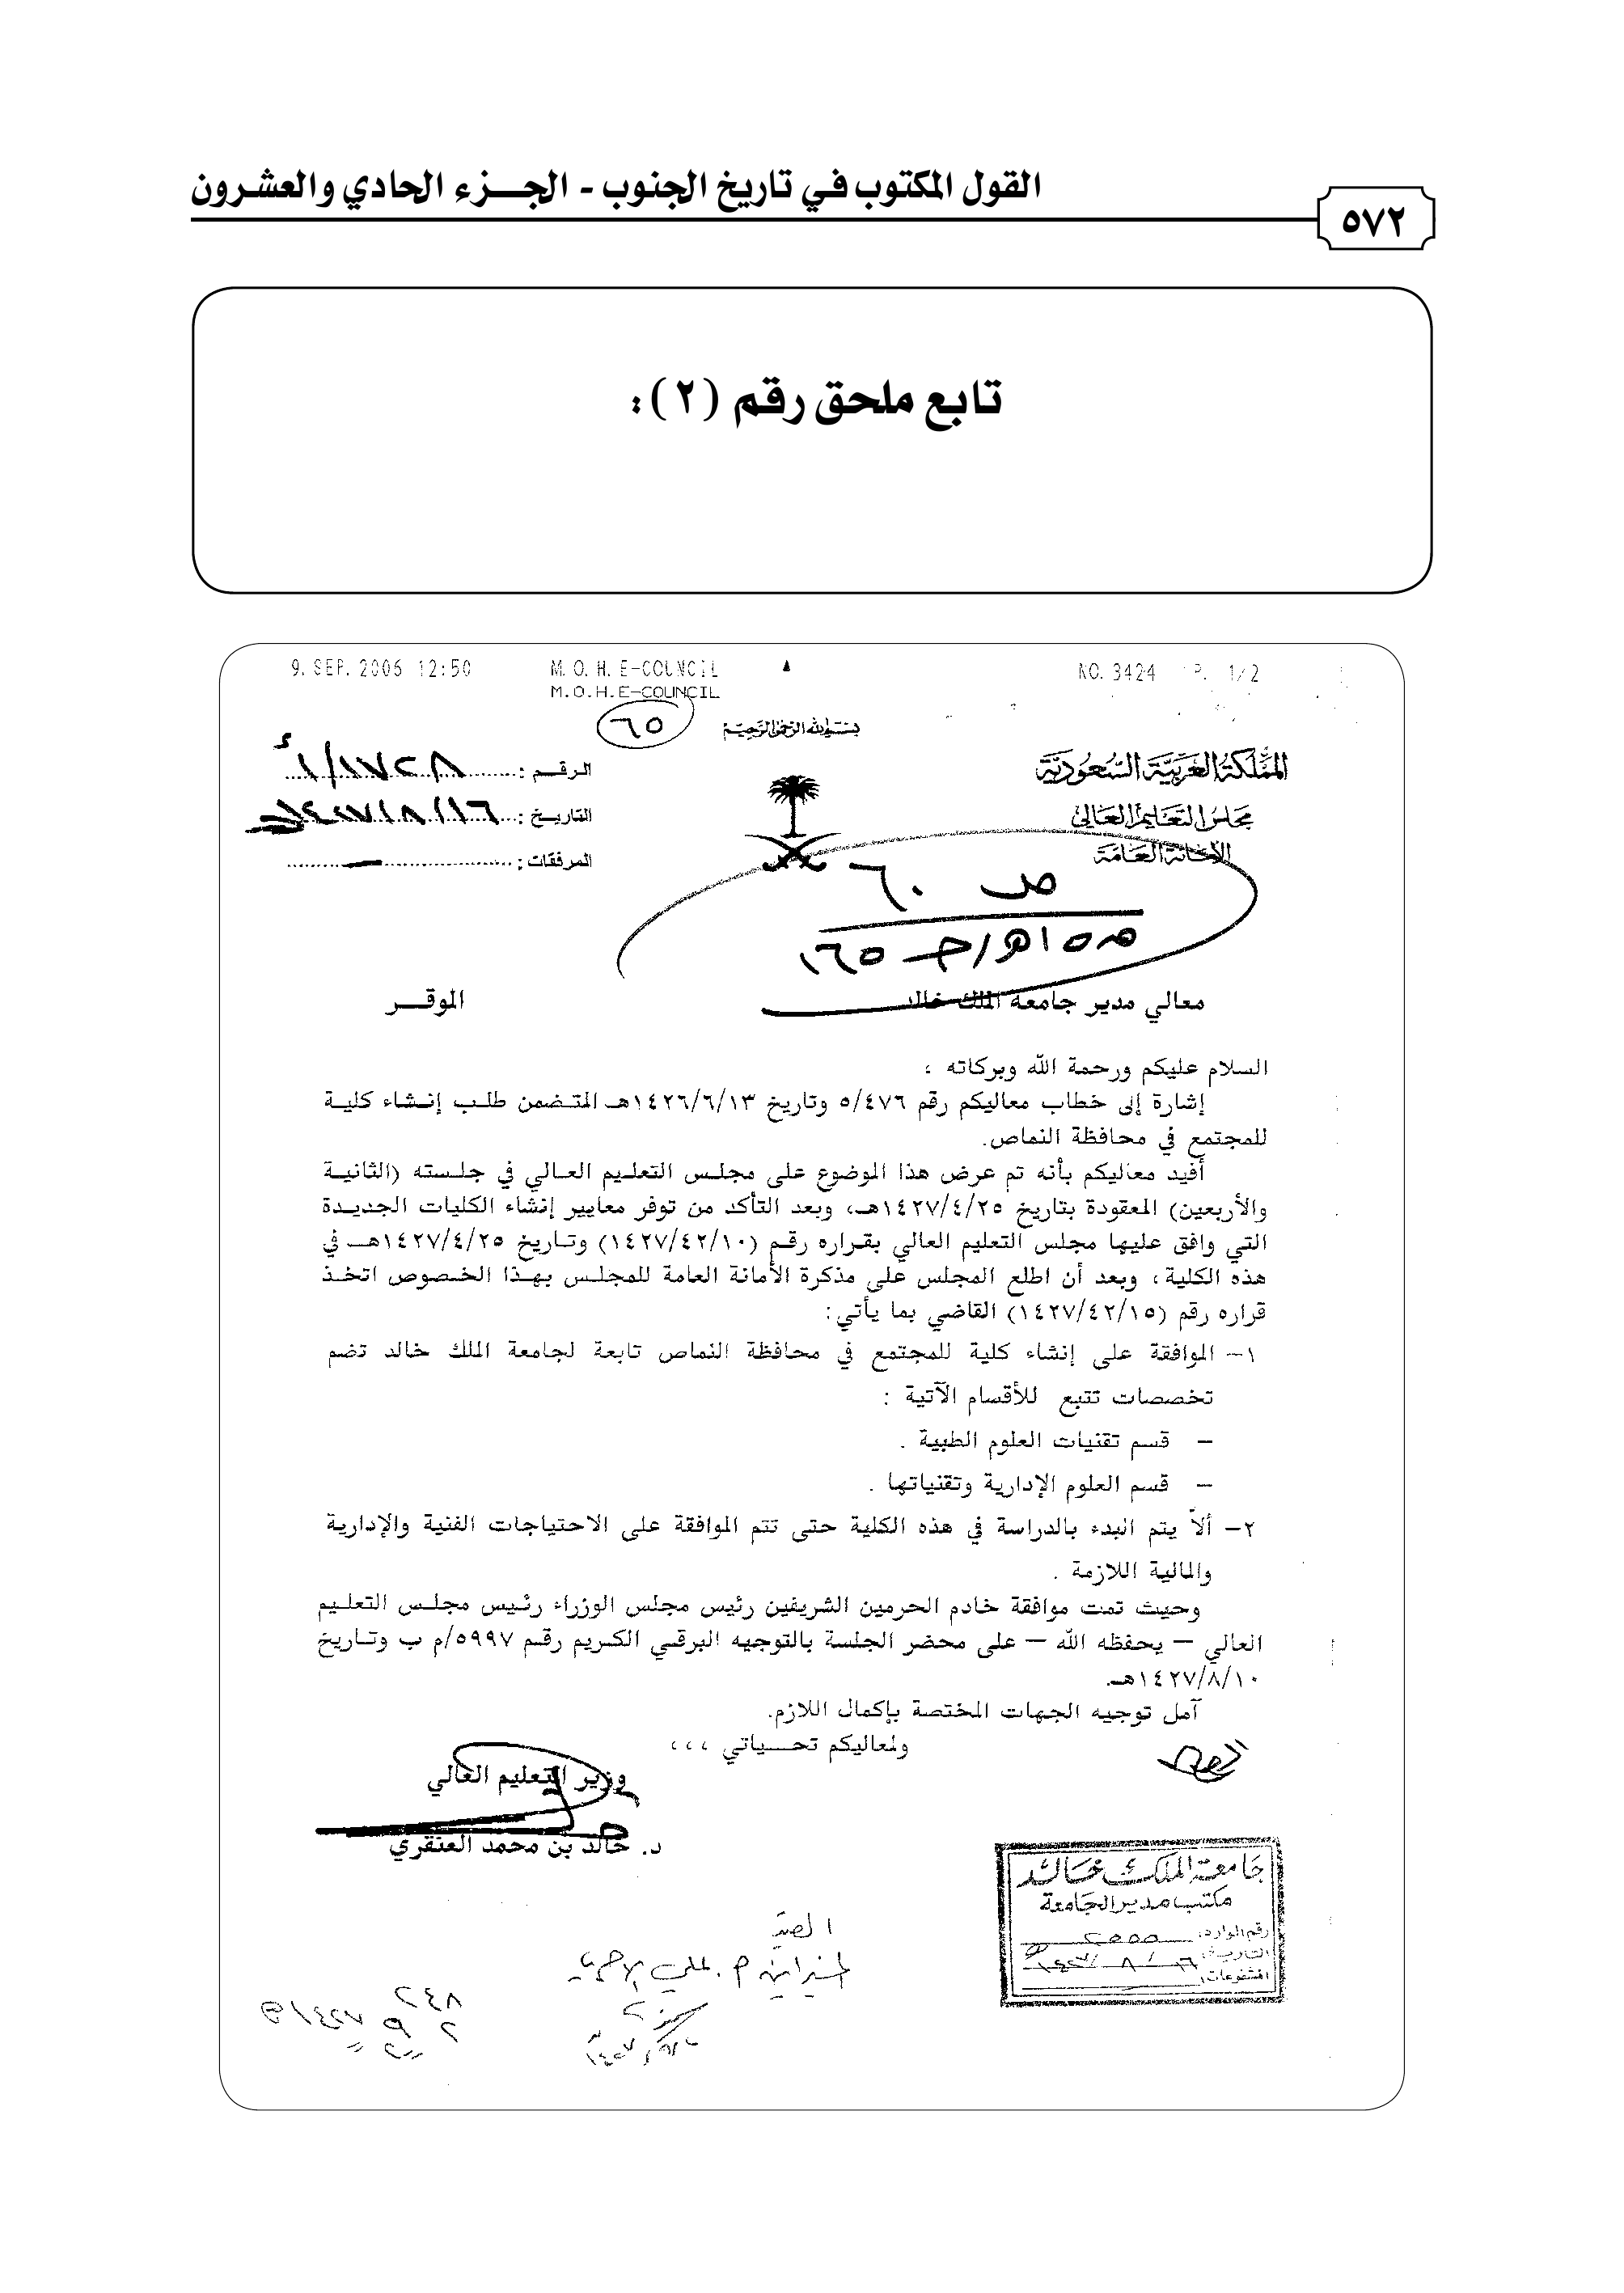 القول المكتوب في تاريخ الجنوب - الجـــزء الحادي والعشرون
٥٧٢
تابع ملحق رقم (٢):
9. SEP. 2006 12:50 M. O. H. E-COUNCIL NO. 3424 P. 1/2
M.O.H.E-COUNCIL
٦٥
بسم الله الرحمن الرحيم
المملكة العربية السعودية
مجلس التعليم العالي
الأمانة العامة
الرقـــم : ١/١٧٢٨أ
التاريــخ : ١٤٢٧/٨/١٦
المرفقات :
ص ٦٠
معالي مدير جامعة الملك خالد الموقـــر
السلام عليكم ورحمة الله وبركاته ؛
إشارة إلى خطاب معاليكم رقم ٥/٤٧٦ وتاريخ ١٤٢٦/٦/١٣هـ المتضمن طلب إنشاء كلية
للمجتمع في محافظة النماص.
أفيد معاليكم بأنه تم عرض هذا الموضوع على مجلس التعليم العالي في جلسته (الثانية
والأربعين) المعقودة بتاريخ ١٤٢٧/٤/٢٥هـ، وبعد التأكد من توفر معايير إنشاء الكليات الجديدة
التي وافق عليها مجلس التعليم العالي بقراره رقم (١٤٢٧/٤٢/١٠) وتاريخ ١٤٢٧/٤/٢٥هـ في
هذه الكلية، وبعد أن اطلع المجلس على مذكرة الأمانة العامة للمجلس بهذا الخصوص اتخذ
قراره رقم (١٤٢٧/٤٢/١٥) القاضي بما يأتي:
١- الموافقة على إنشاء كلية للمجتمع في محافظة النماص تابعة لجامعة الملك خالد تضم
تخصصات تتبع للأقسام الآتية :
- قسم تقنيات العلوم الطبية .
- قسم العلوم الإدارية وتقنياتها .
٢- ألاّ يتم البدء بالدراسة في هذه الكلية حتى تتم الموافقة على الاحتياجات الفنية والإدارية
والمالية اللازمة .
وحيث تمت موافقة خادم الحرمين الشريفين رئيس مجلس الوزراء رئيس مجلس التعليم
العالي – يحفظه الله – على محضر الجلسة بالتوجيه البرقي الكريم رقم ٥٩٩٧/م ب وتاريخ
١٤٢٧/٨/١٠هـ.
آمل توجيه الجهات المختصة بإكمال اللازم.
ولمعاليكم تحـــياتي ،،،
وزير التعليم العالي
د. خالد بن محمد العنقري
جامعة الملك خالد
مكتب مدير الجامعة
رقم الوارد: ٢٥٥٥
التاريخ: ١٤٢٧/٨/١٦
المشفوعات:
٢٤٨